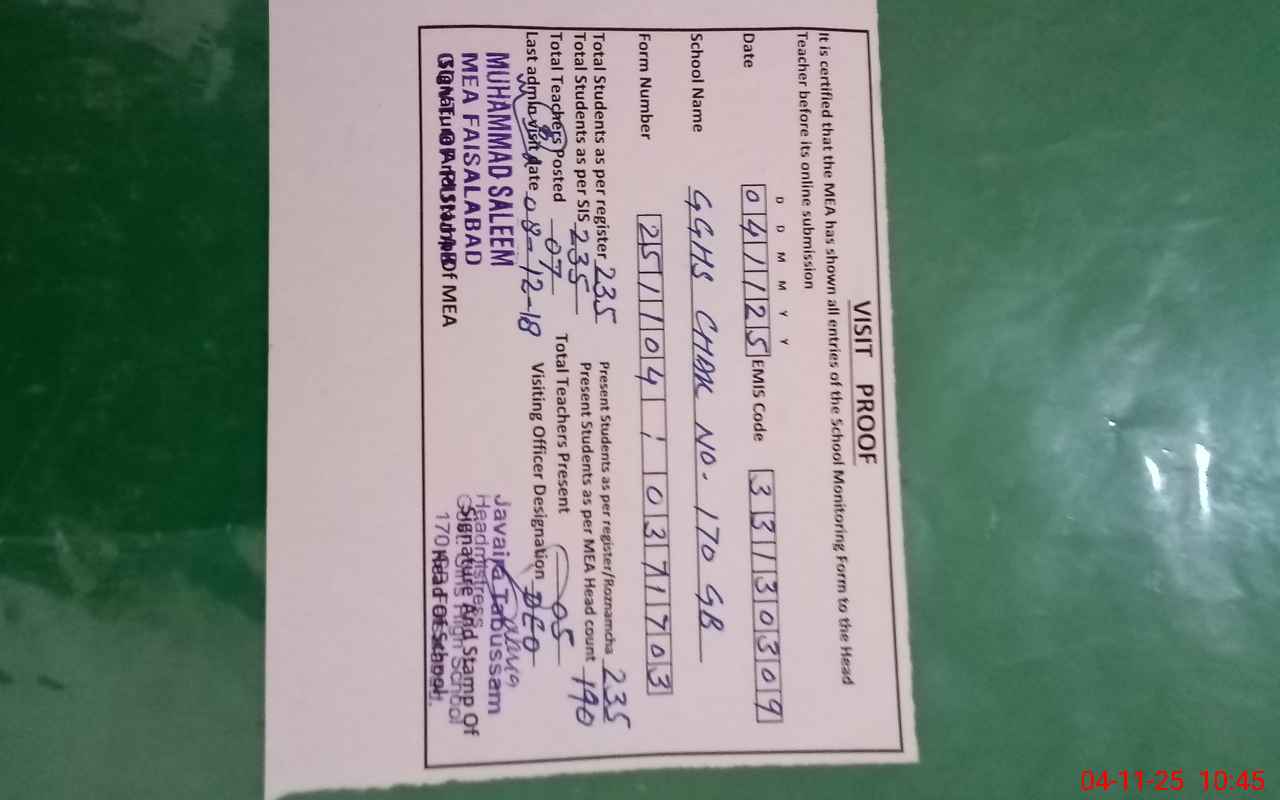 VISIT PROOF
It is certified that the MEA has shown all entries of the School Monitoring Form to the Head
Teacher before its online submission
D D M M Y Y
Date 04/125 EMIS Code 33130309
School Name GGHS CHAK NO. 170 GB
Form Number 251104 10371703
Total Students as per register 235 Present Students as per register/Roznamcha 235
Total Students as per SIS 235 Present Students as per MEA Head count 190
Total Teachers Posted 07 Total Teachers Present 05
Last admin visit date 08-12-18 Visiting Officer Designation DEO
MUHAMMAD SALEEM
MEA FAISALABAD
GOVT. OF PUNJAB
Signature And Stamp Of MEA
Javaira Tabussam
Headmistress
Govt. Girls High School
170
Signature And Stamp Of
Head Of School
04-11-25 10:45